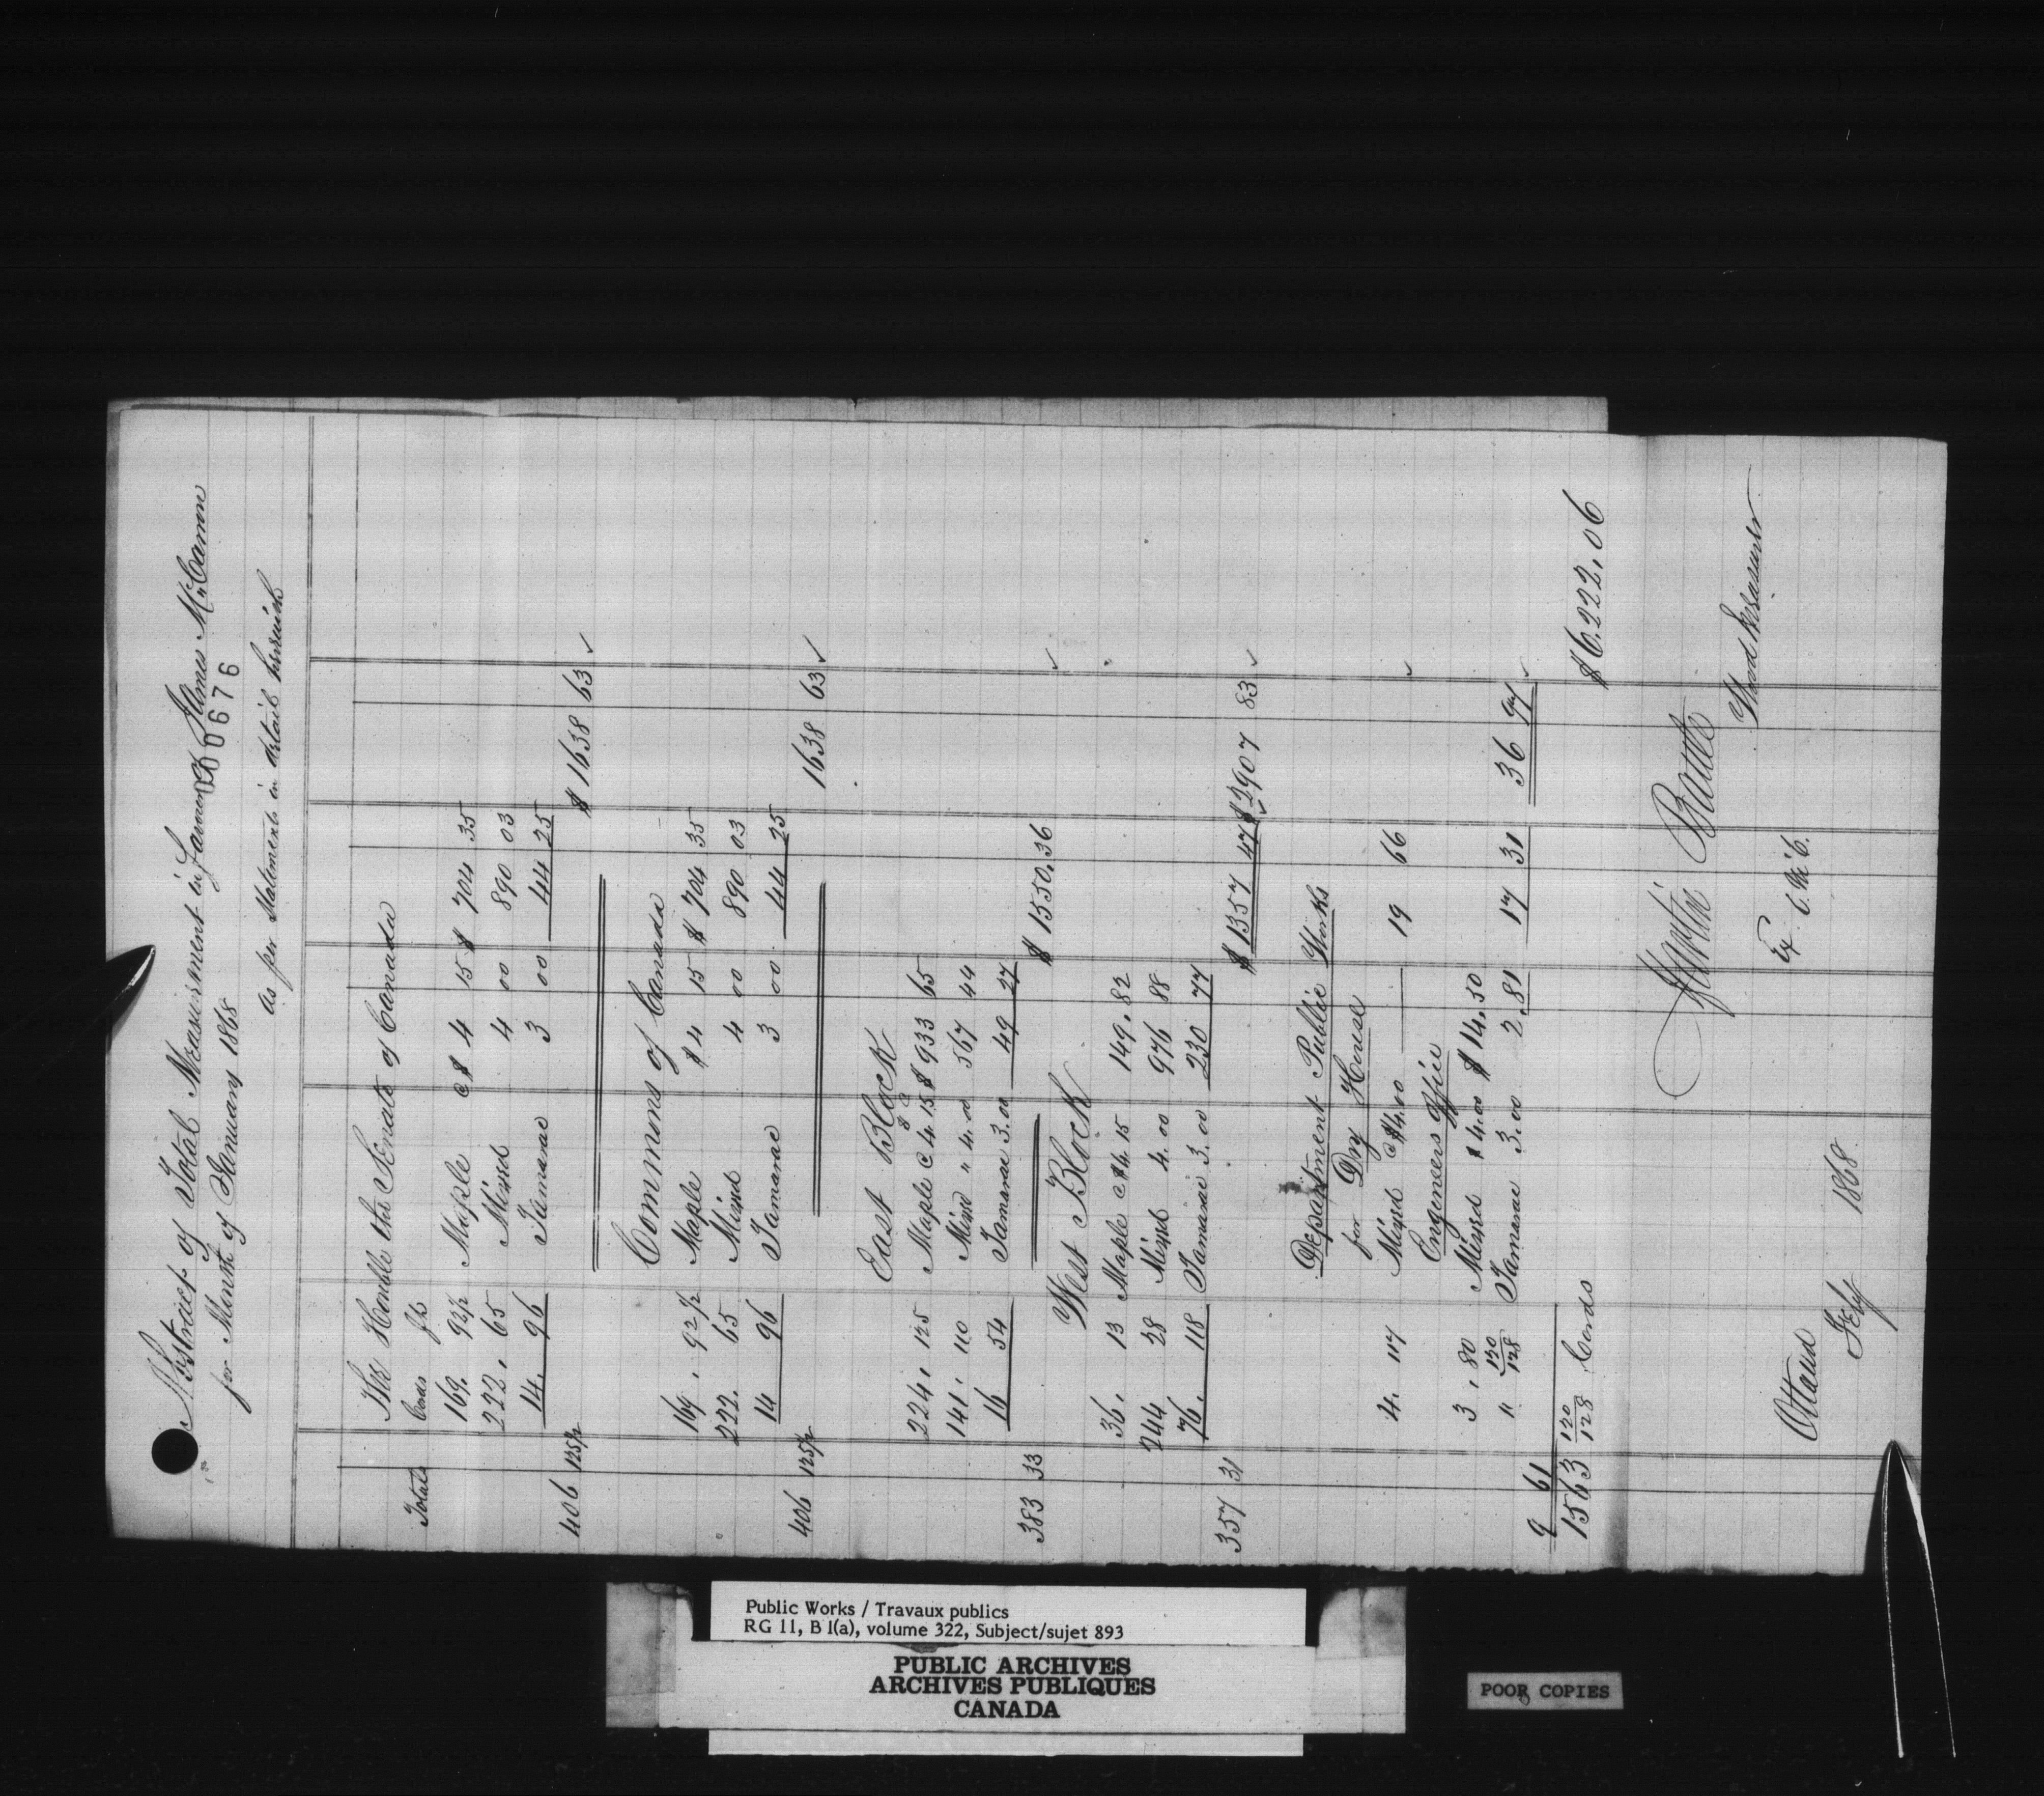 Abstract of Total Measurement in favour of James McCarron
for Month of January 1868
000676
As per Statements in detail herewith
The Honble the Senate of Canada
Totals Cords fts
169. 92½ Maple @ $ 4 15 $ 704 35
222. 65 Mixed 4 00 890 03
14. 96 Tamarac 3 00 44 25
406 125½ $ 1638 63 ✓
Commons of Canada
169. 92½ Maple $ 4 15 $ 704 35
222. 65 Mixed 4 00 890 03
14 96 Tamarac 3 00 44 25
406 125½ 1638 63 ✓
East Block
224. 125 Maple @ 4.15 $ 933 65
141. 110 Mixed " 4.00 567 44
16 54 Tamarac 3.00 49 27
383 33 $ 1550.36 ✓
West Block
36. 13 Maple @ $4.15 149.82
244 28 Mixed 4.00 976 88
76. 118 Tamarac 3.00 230 77
357 31 $ 1357 47 $ 2907 83 ✓
Department Public Works
for Dry House
4. 117 Mixed @ $4.00 — 19 66 ✓
Engineers Office
3. 80 Mixed $4.00 $ 14.50
" 120/128 Tamarac 3.00 2.81 17 31 36 97 ✓
9 61
1563 120/128 Cords $6.222.06
Martin Battle
Wood Measurer
Ex
Ottawa
Feby 1868
Public Works / Travaux publics
RG 11, B 1(a), volume 322, Subject/sujet 893
PUBLIC ARCHIVES
ARCHIVES PUBLIQUES
CANADA
POOR COPIES